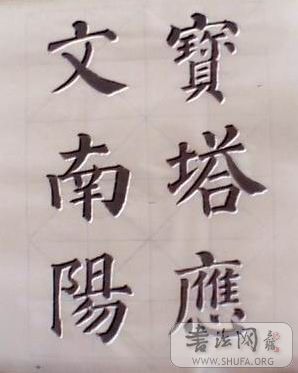 寶塔應
文南陽
書法网
WWW.SHUFA.ORG